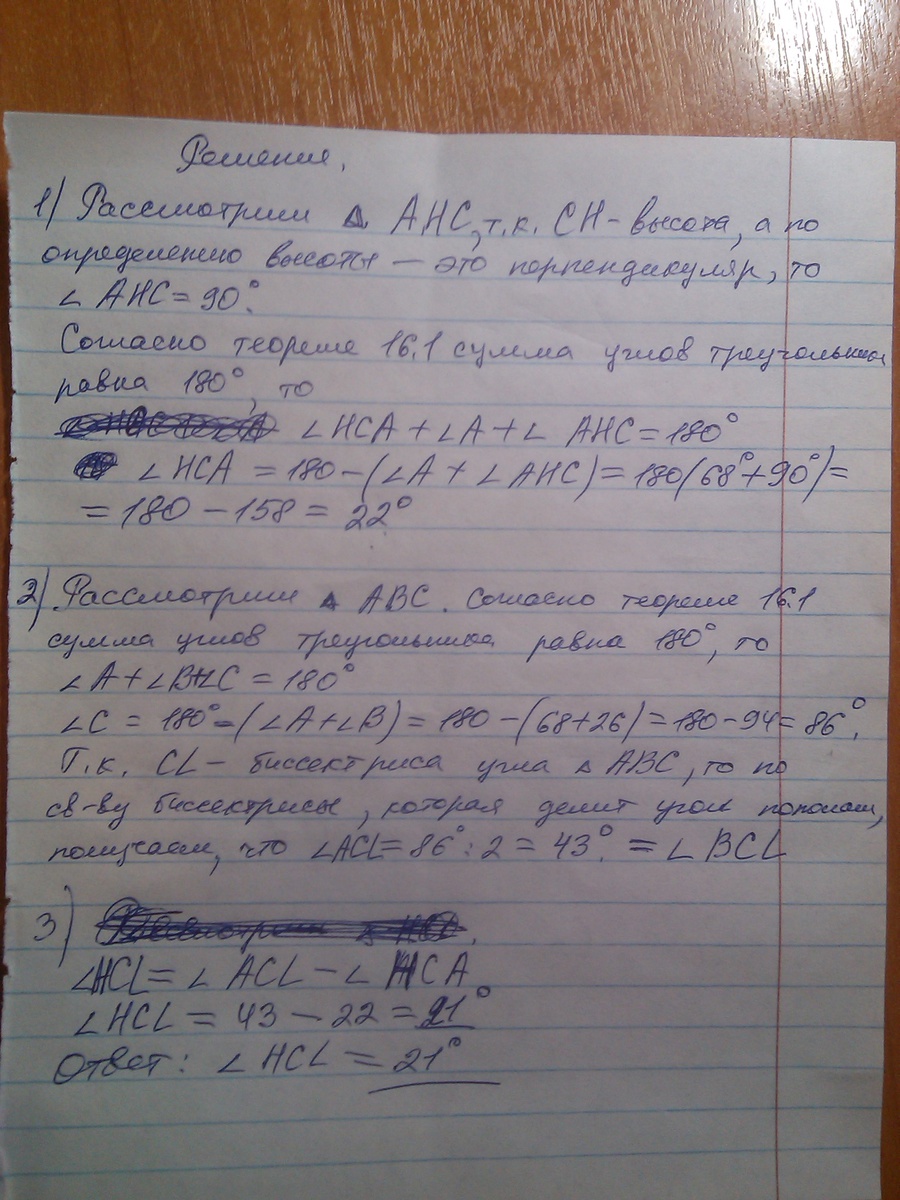 Решения.
1) Рассмотрим △ AHC, т.к. CH - высота, а по
определению высоты — это перпендикуляр, то
∠ AHC = 90°.
Согласно теореме 16.1 сумма углов треугольника
равна 180°, то
∠ HCA + ∠A + ∠ AHC = 180°
∠ HCA = 180 - (∠A + ∠AHC) = 180(68° + 90°) =
= 180 - 158 = 22°
2) Рассмотрим △ ABC. Согласно теореме 16.1
сумма углов треугольника равна 180°, то
∠A + ∠B + ∠C = 180°
∠C = 180° - (∠A + ∠B) = 180 - (68 + 26) = 180 - 94 = 86°.
Т.к. CL - биссектриса угла △ ABC, то по
св-ву биссектрисы, которая делит угол пополам,
получаем, что ∠ACL = 86° : 2 = 43°. = ∠ BCL
3)
∠HCL = ∠ ACL - ∠ HCA
∠ HCL = 43 - 22 = 21°
Ответ: ∠ HCL = 21°